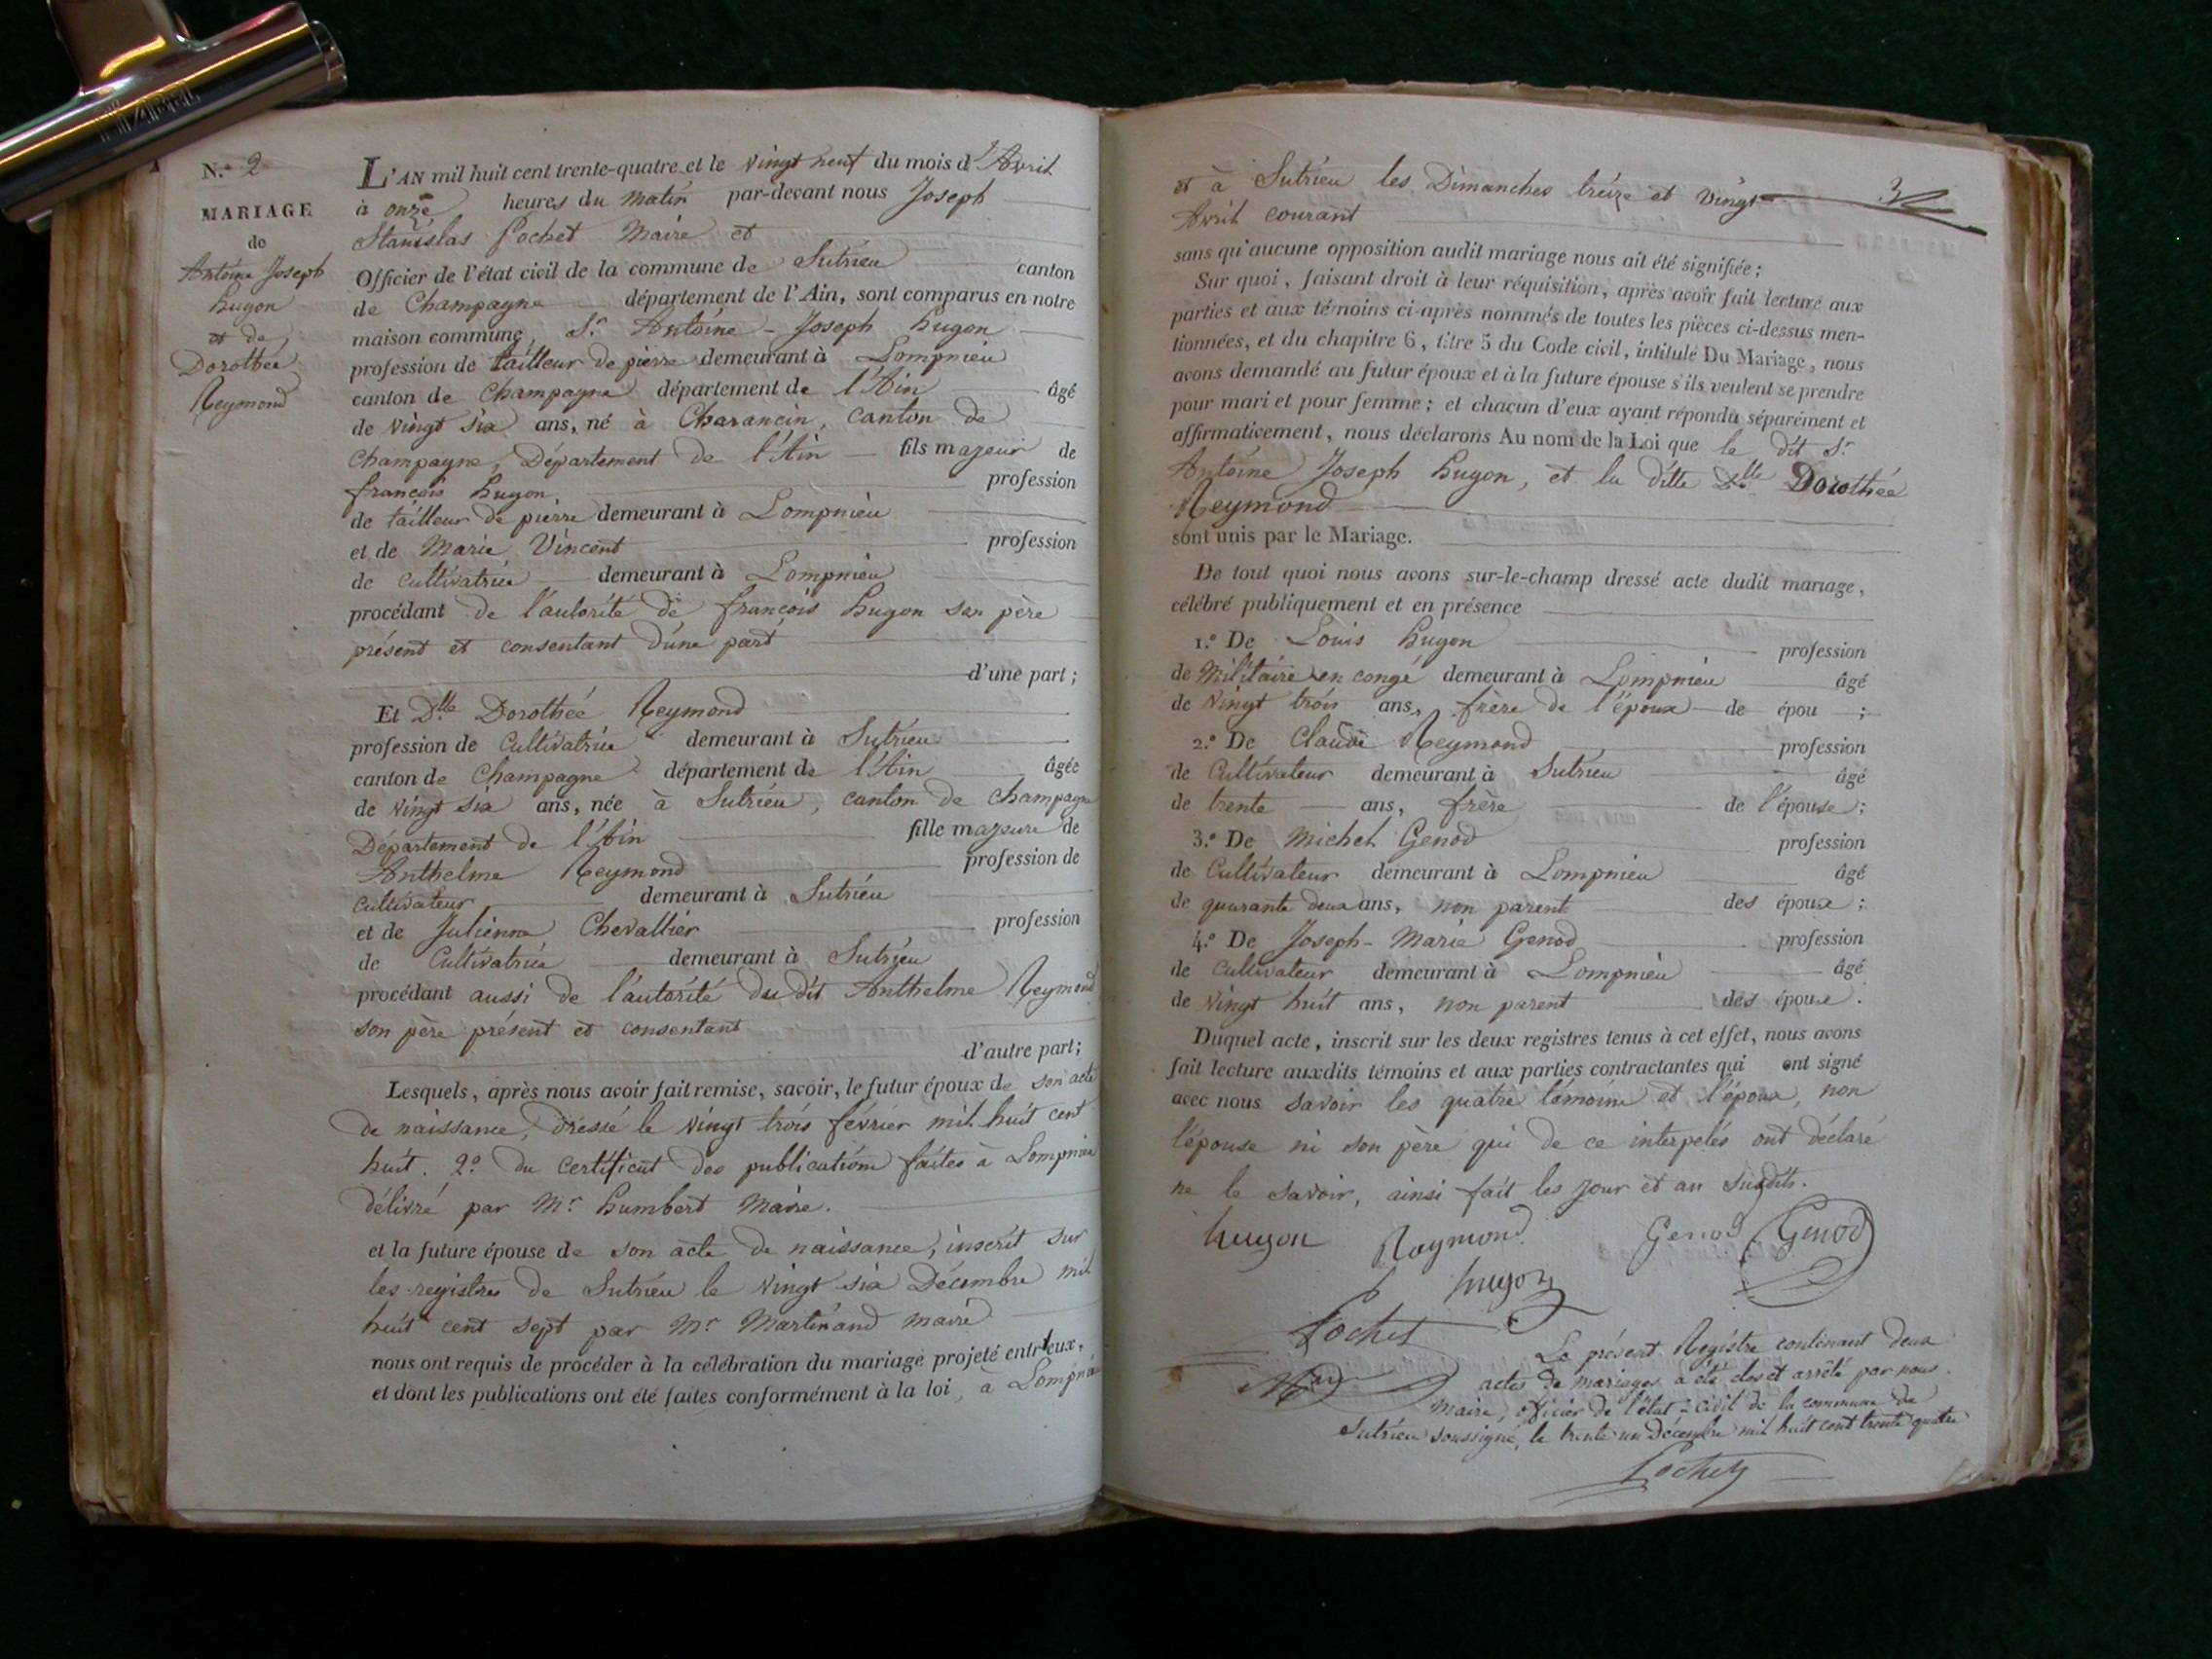 N.º 2
MARIAGE
de
Antoine Joseph
hugon
et de
Dorothée
Reymond
L'AN mil huit cent trente-quatre et le vingt neuf du mois d'Avril
à onze heures du matin par-devant nous Joseph
Stanislas Lochet Maire et
Officier de l'état civil de la commune de Sutrieu canton
de Champagne département de l'Ain, sont comparus en notre
maison commune, S.r Antoine - Joseph hugon
profession de tailleur de pierre demeurant à Lompnieu
canton de Champagne département de l'Ain âgé
de vingt six ans, né à Charancin, canton de
Champagne, Département de l'Ain fils majeur de
françois hugon, profession
de tailleur de pierre demeurant à Lompnieu
et de Marie Vincent profession
de cultivatrice demeurant à Lompnieu
procédant de l'autorité de françois hugon son père
présent et consentant d'une part
d'une part;
Et D.lle Dorothée Reymond
profession de Cultivatrice demeurant à Sutrieu
canton de Champagne département de l'Ain âgée
de vingt six ans, née à Sutrieu, canton de champagne
Département de l'Ain fille majeure de
Anthelme Reymond profession de
cultivateur demeurant à Sutrieu
et de Julienne Chevallier profession
de Cultivatrice demeurant à Sutrieu
procédant aussi de l'autorité du dit Anthelme Reymond
son père présent et consentant
d'autre part;
Lesquels, après nous avoir fait remise, savoir, le futur époux de son acte
de naissance, dressé le vingt trois février mil huit cent
huit. 2.º du certificat des publications faites à Lompnieu
délivré par M.r humbert Maire.
et la future épouse de son acte de naissance, inscrit sur
les registres de Sutrieu le vingt six Décembre mil
huit cent sept par M.r Martinand maire
nous ont requis de procéder à la célébration du mariage projeté entr'eux,
et dont les publications ont été faites conformément à la loi, à Lompnieu
3
et à Sutrieu les Dimanches treize et vingt
Avril courant
sans qu'aucune opposition audit mariage nous ait été signifiée;
Sur quoi, faisant droit à leur réquisition, après avoir fait lecture aux
parties et aux témoins ci-après nommés de toutes les pièces ci-dessus men-
tionnées, et du chapitre 6, titre 5 du Code civil, intitulé Du Mariage, nous
avons demandé au futur époux et à la future épouse s'ils veulent se prendre
pour mari et pour femme; et chacun d'eux ayant répondu séparément et
affirmativement, nous déclarons Au nom de la Loi que le dit S.r
Antoine Joseph hugon, et la ditte D.lle Dorothée
Reymond
sont unis par le Mariage.
De tout quoi nous avons sur-le-champ dressé acte dudit mariage,
célébré publiquement et en présence
1.º De Louis hugon profession
de Militaire en congé demeurant à Lompnieu âgé
de vingt trois ans, frère de l'époux de épou ;
2.º De Claude Reymond profession
de Cultivateur demeurant à Sutrieu âgé
de trente ans, frère de l'épouse;
3.º De Michel Genod profession
de Cultivateur demeurant à Lompnieu âgé
de quarante deux ans, non parent des époux;
4.º De Joseph-Marie Genod profession
de cultivateur demeurant à Lompnieu âgé
de vingt huit ans, non parent des époux.
Duquel acte, inscrit sur les deux registres tenus à cet effet, nous avons
fait lecture auxdits témoins et aux parties contractantes qui ont signé
avec nous savoir les quatre témoins et l'époux, non
l'épouse ni son père qui de ce interpelés ont déclaré
ne le savoir, ainsi fait les jour et an susdits.
hugon Raymond Genod Genod
hugon
Lochet
Maire
Le présent Registre contenant deux
actes de mariages a été clos et arrêté par nous
Maire, officier de l'état-civil de la commune de
Sutrieu soussigné, le trente un décembre mil huit cent trente quatre
Lochet